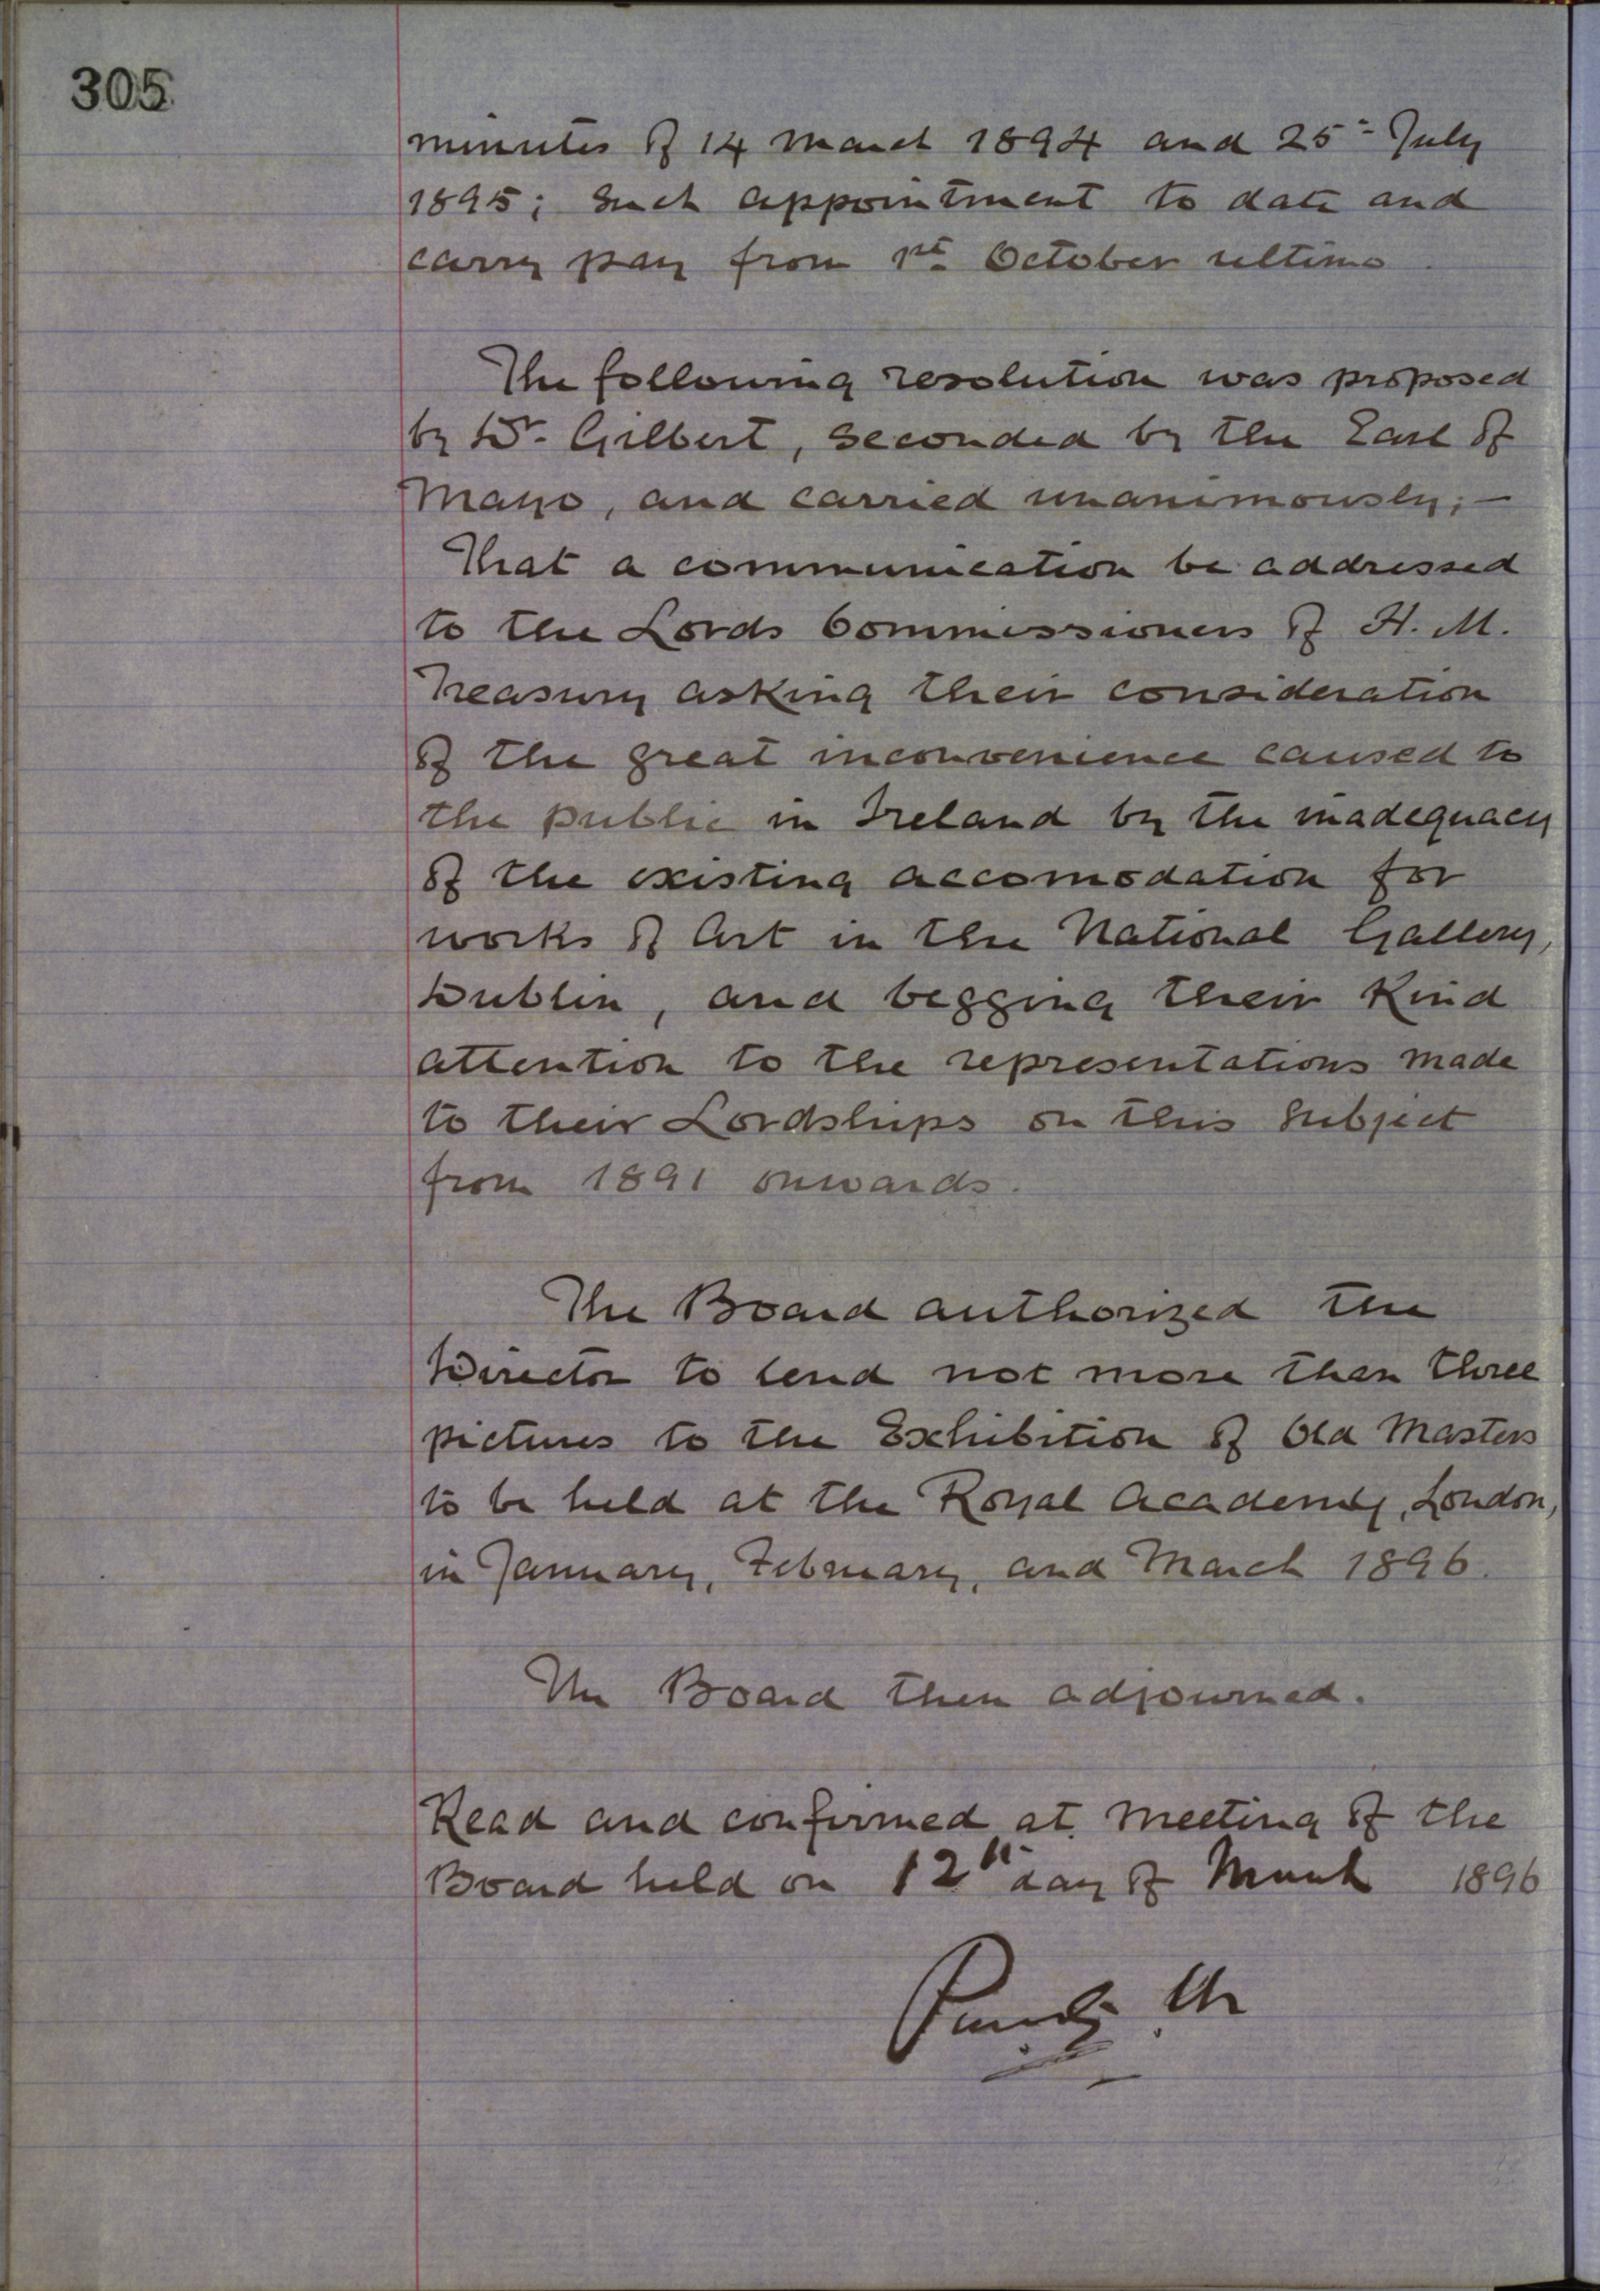 305
minutes of 14 March 1894 and 25- July
1895; Such appointment to date and
carry pay from 1st. October ultimo.
The following resolution was proposed
by Dr. Gilbert, seconded by the Earl of
Mayo, and carried unanimously; —
That a communication be addressed
to the Lords Commissioners of H. M.
Treasury asking their consideration
of the great inconvenience caused to
the public in Ireland by the inadequacy
of the existing accomodation for
works of Art in the National Gallery,
Dublin, and begging their kind
attention to the representations made
to their Lordships on this Subject
from 1891 onwards.
The Board authorized the
Director to lend not more than three
pictures to the Exhibition of Old Masters
to be held at the Royal Academy, London,
in January, February, and March 1896.
The Board then adjourned.
Read and confirmed at meeting of the
Board held on 12th day of March 1896